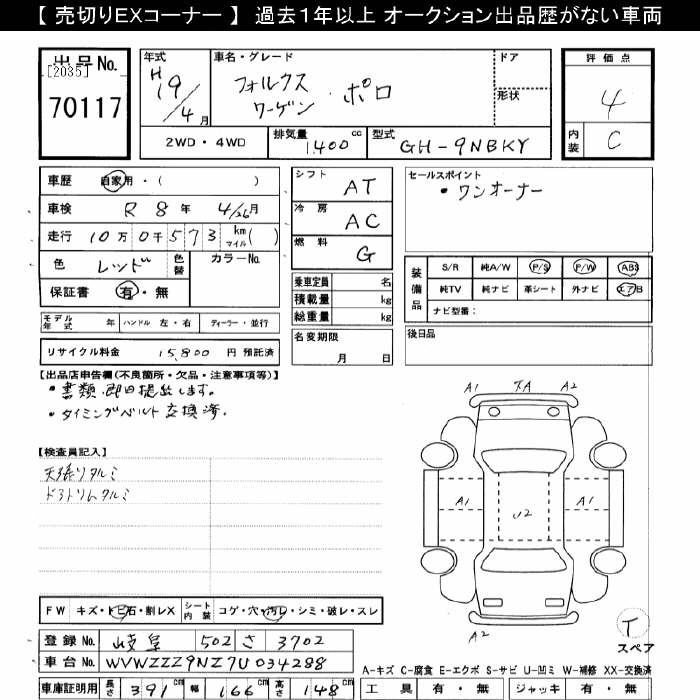 【 売切りEXコーナー 】 過去１年以上 オークション出品歴がない車両
出品No.
[2035]
70117
年式
H19/4月
車名・グレード
フォルクスワーゲン ・ポロ
ドア
形状
評価点
4
内装 C
2WD・4WD
排気量 1400 cc
型式 GH-9NBKY
車歴 自家用・( )
車検 R 8年 4/26月
走行 10万0千573 km マイル( )
色 レッド 色替 カラーNo.
保証書 有・無
モデル年式 年 ハンドル 左・右 ディーラー・並行
リサイクル料金 15,800 円 預託済
シフト AT
冷房 AC
燃料 G
乗車定員 名
積載量 kg
総重量 kg
名変期限
月 日
セールスポイント
・ワンオーナー
装備品
S/R 純A/W P/S P/W ABS
純TV 純ナビ 革シート 外ナビ エアB
ナビ型番：
後日品
【出品店申告欄(不良箇所・欠品・注意事項等)】
・書類 即日提出します。
・タイミングベルト交換済.
【検査員記入】
天張りタルミ
ドアトリムタルミ
A1 A2
A1 U2 A1
A2
T
スペア
FW キズ・トビ石・割レX シート内装 コゲ・穴・汚レ・シミ・破レ・スレ
登録No. 岐阜 502 さ 3702
車台No. WVWZZZ9NZ7U034288
車庫証明用 長さ 391 cm 幅 166 cm 高さ 148 cm
A-キズ C-腐食 E-エクボ S-サビ U-凹ミ W-補修 XX-交換済
工具 有・無 ジャッキ 有・無